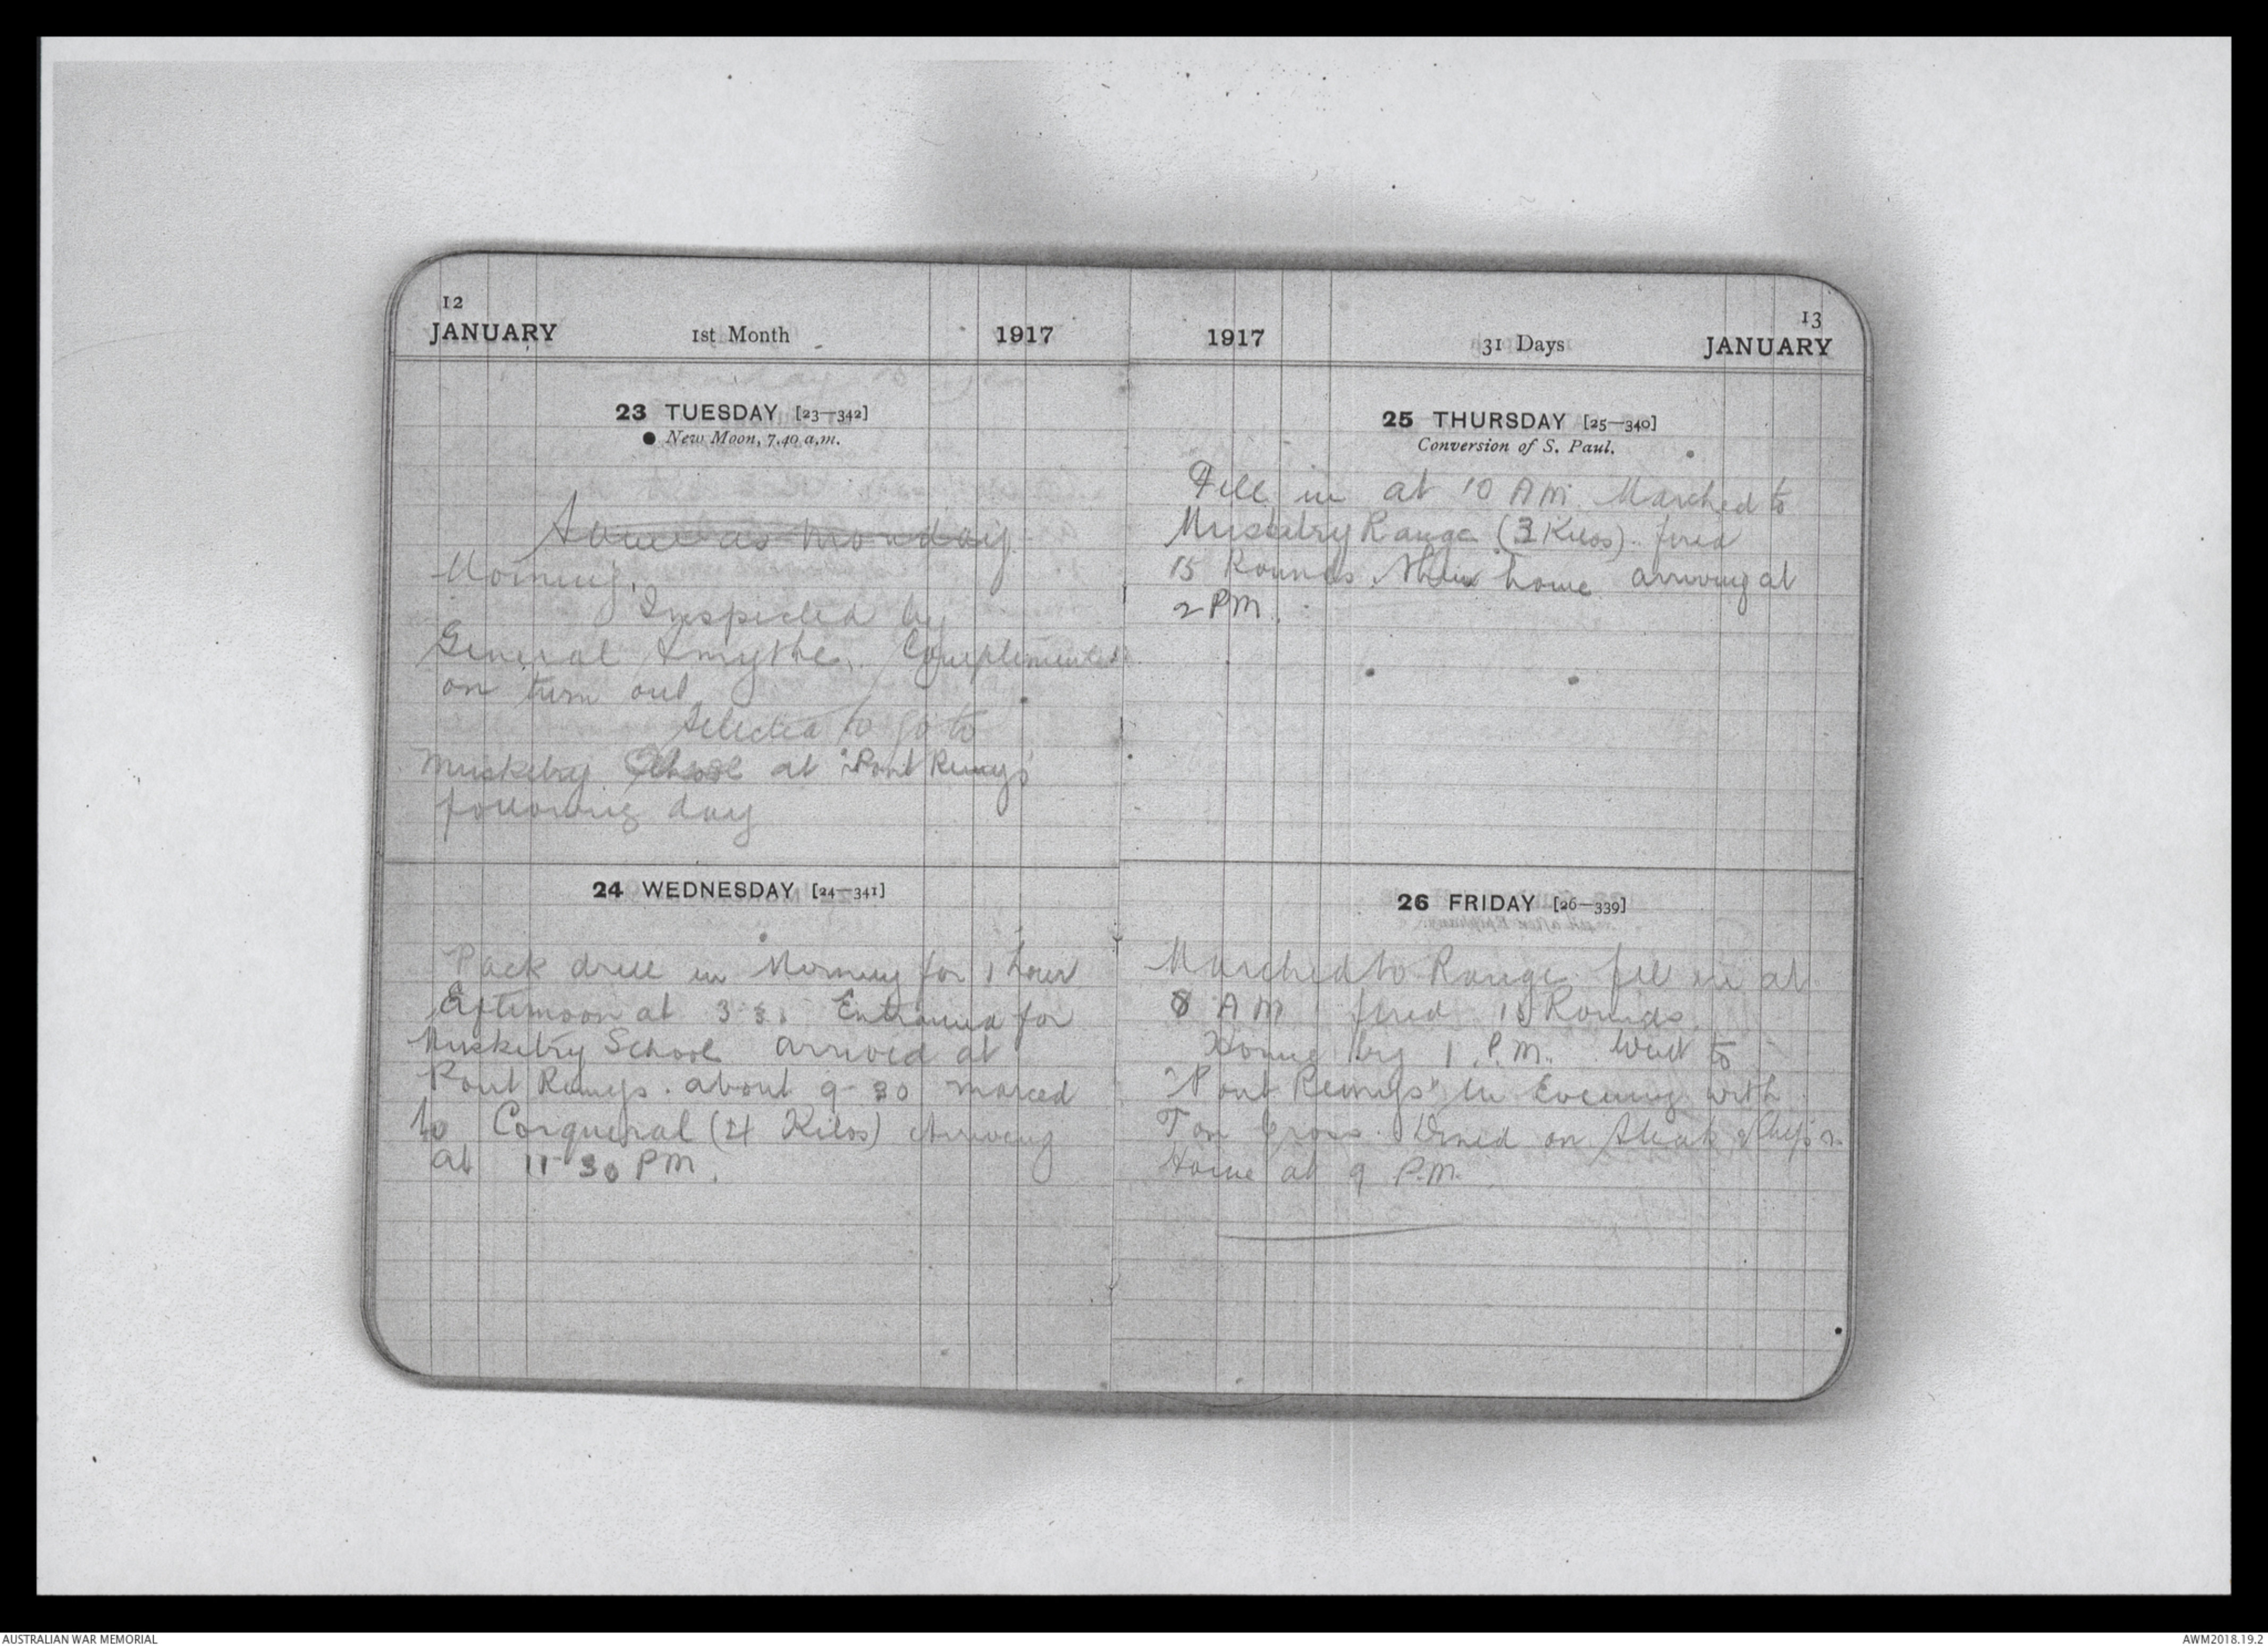 12
JANUARY 1st Month 1917
23 TUESDAY [23—342]
● New Moon, 7.40 a.m.
Same as Monday
Morning.
Inspected by
General Smythe. Complimented
on turn out
Selected to go to
Musketry School at "Pont Remys"
following day
24 WEDNESDAY [24—341]
Pack drill in Morning for 1 hour
Afternoon at 3 Entrained for
Musketry School arrived at
Pont Remys. about 9-30 marced
to Corqueral (4 Kilos) Arriving
at 11-30 PM.
13
1917 31 Days JANUARY
25 THURSDAY [25—340]
Conversion of S. Paul.
Fell in at 10 AM Marched to
Musketry Range (3 Kilos). fired
15 Rounds then home arriving at
2 PM.
26 FRIDAY [26—339]
Marched to Range. fell in at
8 AM fired 15 Rounds
Home by 1 P.M. Went to
"Pont Remys" in Evening with
Tom Cross. Dined on Steak & Chips.
Home at 9 P.M.
AUSTRALIAN WAR MEMORIAL
AWM2018.19.2